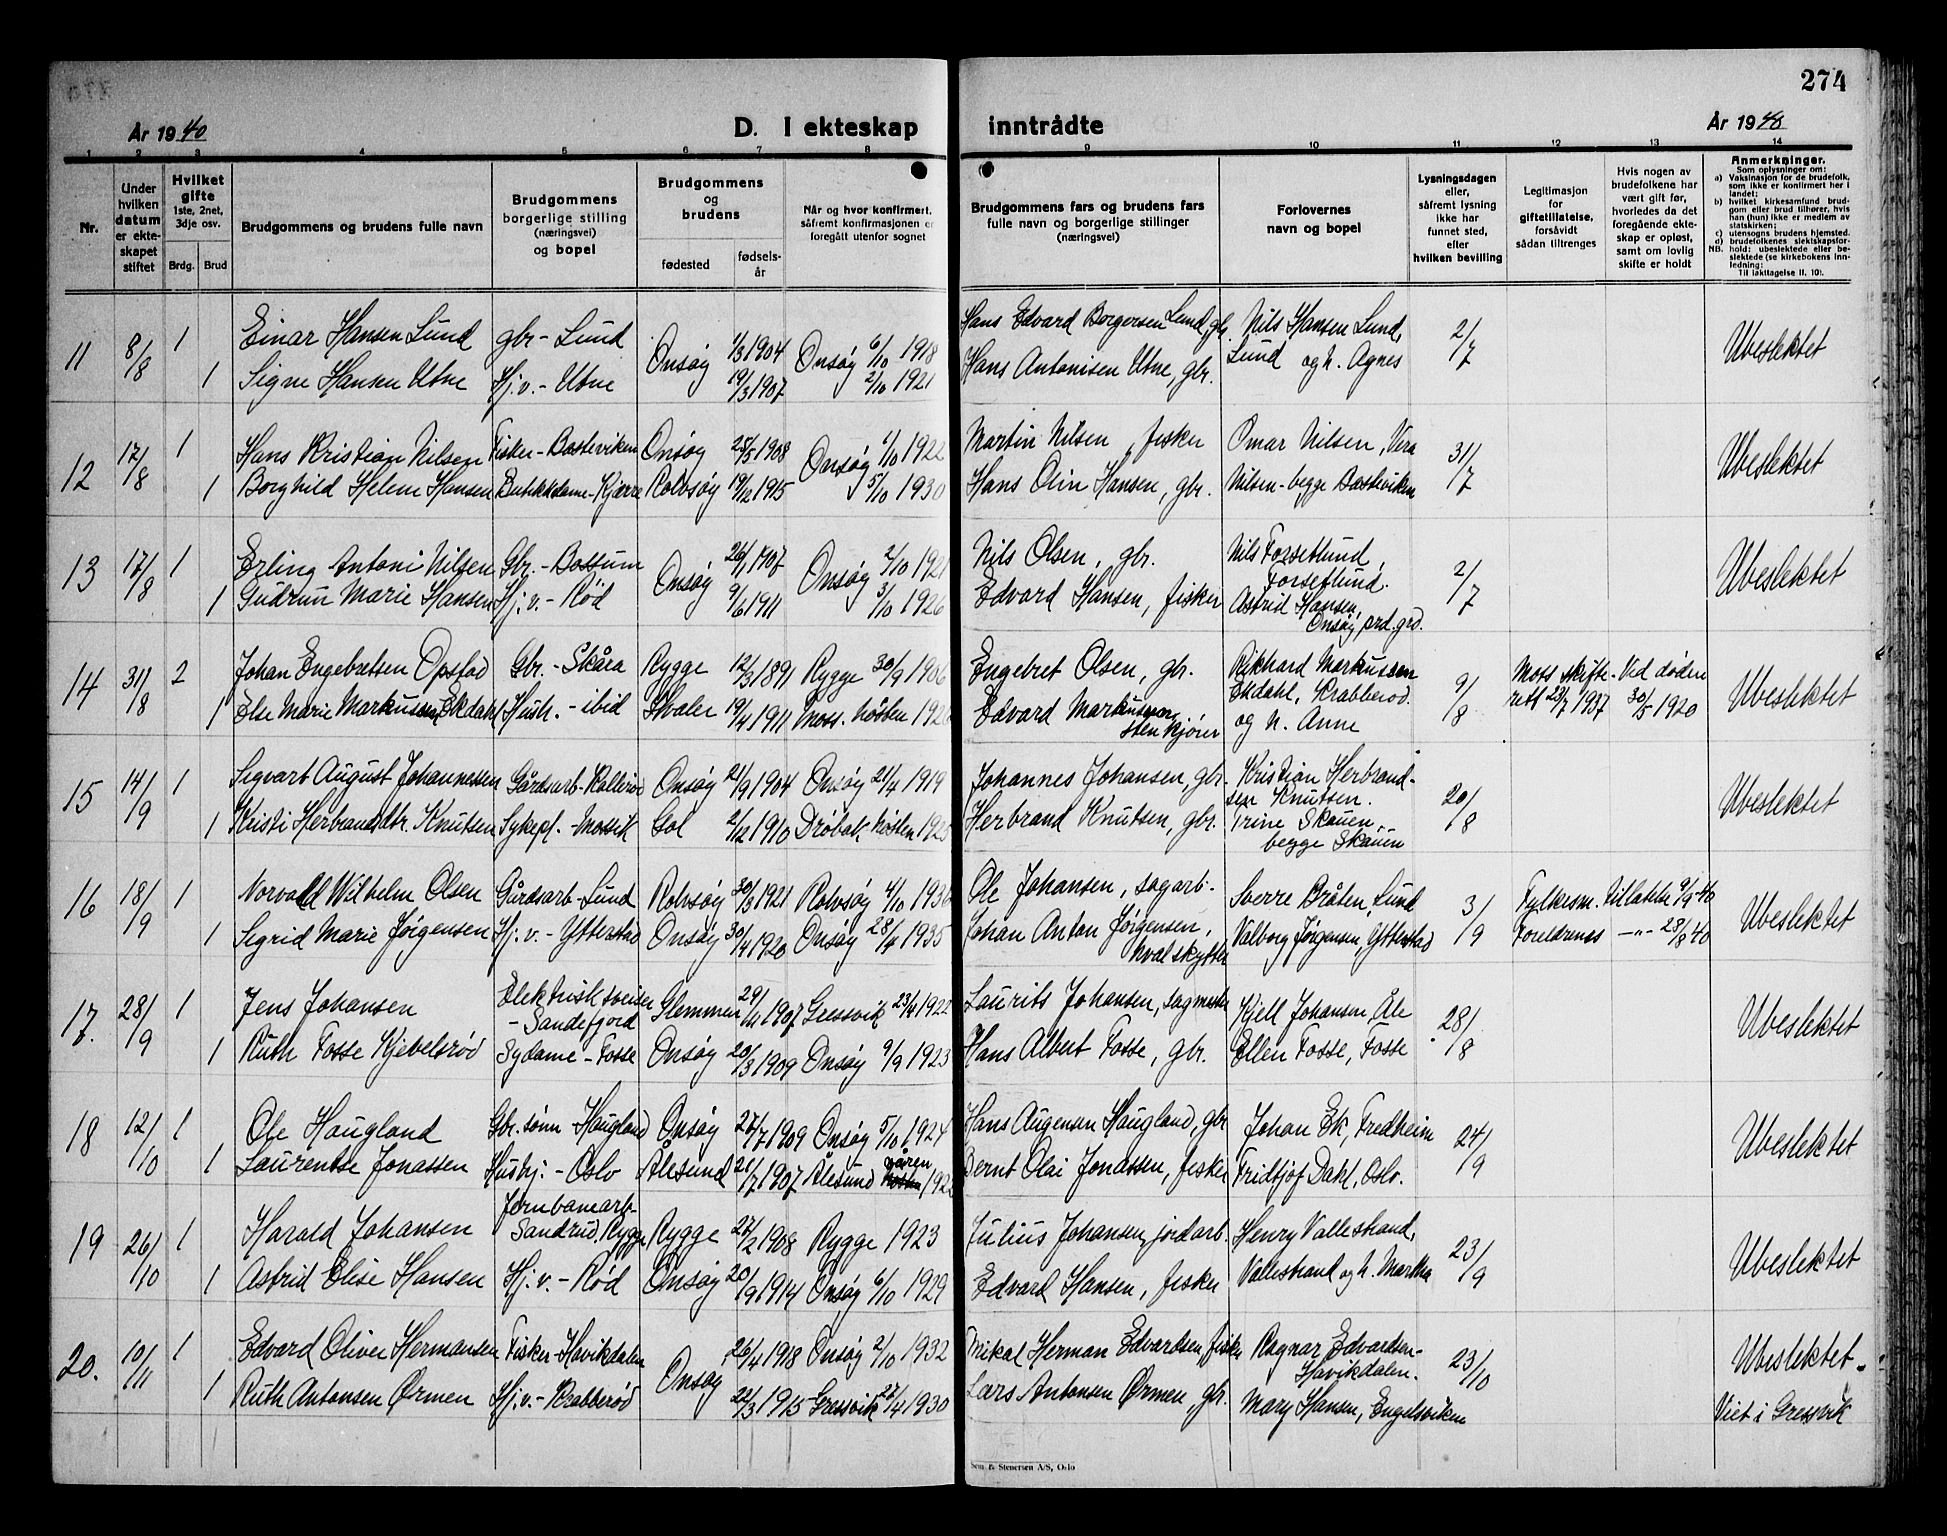 274
År 1940
D. I ekteskap
inntrådte
År 1940
1 2 3 4 5 6 7 8
9 10 11 12 13 14
Nr.
Under hvilken datum er ekteskapet stiftet
Hvilket gifte 1ste, 2net, 3dje osv.
Brdg. Brud
Brudgommens og brudens fulle navn
Brudgommens borgerlige stilling (næringsvei) og bopel
Brudgommens og brudens
fødested
fødselsår
Når og hvor konfirmert, såfremt konfirmasjonen er foregått utenfor sognet
Brudgommens fars og brudens fars fulle navn og borgerlige stillinger (næringsvei)
Forlovernes navn og bopel
Lysningsdagen eller, såfremt lysning ikke har funnet sted, efter hvilken bevilling
Legitimasjon for giftetillatelse, forsåvidt sådan tiltrenges
Hvis nogen av brudefolkene har vært gift før, hvorledes da det foregående ekteskap er opløst, samt om lovlig skifte er holdt
Anmerkninger.
Som oplysninger om:
a) Vaksinasjon for de brudefolk, som ikke er konfirmert her i landet;
b) hvilket kirkesamfund brudgom eller brud tilhører, hvis han (hun) ikke er medlem av statskirken;
c) utensogns brudens hjemsted.
d) brudefolkenes slektskapsforhold: ubeslektede eller beslektede (se kirkebokens innledning:
NB.
Til iakttagelse II. 10).
11 8/8 1 Einar Hansen Lund gbr - Lund Onsøy 1/3 1904 Onsøy 6/10 1918 Hans Edvard Borgersen Lund, gbr. Nils Hansen Lund, 2/7 Ubeslektet
1 Signe Hansen Utne Hj.v. - Utne 19/3 1907 2/10 1921 Hans Antonisen Utne, gbr. Lund og h. Agnes
12 17/8 1 Hans Kristian Nilsen Fisker - Bosteviken Onsøy 28/5 1908 Onsøy 1/10 1922 Martin Nilsen, fisker Omar Nilsen, Vera 31/7 Ubeslektet
1 Borghild Helene Hansen Butikkdame - Kjærre Rolvsøy 19/12 1915 5/10 1930 Hans Olin Hansen, gbr. Nilsen - begge Bosteviken
13 17/8 1 Erling Antoni Nilsen Gbr. - Bossum Onsøy 26/1 1907 Onsøy 2/10 1921 Nils Olsen, gbr. Nils Forsetlund, 2/7 Ubeslektet
Forsetlund.
1 Gudrun Marie Hansen Hj.v. - Rød 9/6 1911 3/10 1926 Edvard Hansen, fisker Astrid Hansen,
Onsøy prd.grd.
14 31/8 2 Johan Engebretsen Opstad Gbr. - Skåra Rygge 12/3 1891 Rygge 30/9 1906 Engebret Olsen, gbr. Rikhard Markussen 9/8 Moss skifte- Vid døden Ubeslektet
Ekdahl, Krabberød. rett 23/7 1937 30/5 1920
1 Else Marie Markussen Ekdahl Hush. - ibid Hvaler 19/4 1911 Moss. høsten Edvard Markussen og h. Anne
15 14/9 1 Sigvart August Johannessen Gårdsarb - Kallerød Onsøy 21/9 1904 Onsøy 21/4 1919 Johannes Johansen, gbr. Kristian Herbrand- 20/8 Ubeslektet
sen Knutsen.
1 Kristi Herbrandsdtr. Knutsen Sykepl. - Mossik Gol 2/12 1910 Drøbak høsten Herbrand Knutsen, gbr. Trine Skauen,
begge Skauen
16 18/9 1 Norvald Wilhelm Olsen Gårdsarb - Lund Rolvsøy 30/3 1921 Rolvsøy 4/10 1936 Ole Johansen, sagarb. Sverre Bråten, Lund 3/9 Fylkesm. tillatelse 9/9-40 Ubeslektet
1 Sigrid Marie Jørgensen Hj.v. - Ytterstad Onsøy 30/4 1920 Onsøy 28/4 1935 Johan Anton Jørgensen, Valborg Jørgensen, Ytterstad Foreldrenes -"- 28/8 40
hvalskytter
17. 28/9 1 Jens Johansen Elektrisk sveiser Glemmen 29/11 1907 Gressvik 23/4 1922 Laurits Johansen, sagmester Kjell Johansen, Åle 28/8 Ubeslektet
- Sandefjord
1 Ruth Fosse Kjebelsrød Sydame - Fosse Onsøy 20/3 1909 Onsøy 9/9 1923 Hans Albert Fosse, gbr. Ellen Fosse, Fosse
18 12/10 1 Ole Haugland Gbr.sønn - Haugland Onsøy 27/7 1909 Onsøy 5/10 1924 Hans Augensen Haugland, gbr Johan Ek, Fredheim 24/9 Ubeslektet
1 Laurentse Jonassen Hushj. - Oslo Ålesund 21/7 1907 Ålesund våren Bernt Olai Jonassen, fisker Fridtjof Dahl, Oslo.
19 26/10 1 Harald Johansen Jernbanearb- Rygge 27/2 1908 Rygge 1923 Julius Johansen, jordarb. Henry Vallestrand, 23/9 Ubeslektet
Sandrud, Rygge
1 Astrid Elise Hansen Hj.v. - Rød Onsøy 20/9 1914 Onsøy 6/10 1929 Edvard Hansen, fisker Vallestrand og h. Martha
20. 10/11 1 Edvard Oliver Hermansen Fisker - Havikdalen Onsøy 26/4 1918 Onsøy 2/10 1932 Mikal Herman Edvardsen, fisker Ragnar Edvardsen- 23/10 Ubeslektet.
Havikdalen.
1 Ruth Antonsen Ørmen Hj.v. - Krabberød 22/3 1915 Gressvik 27/4 1930 Lars Antonsen Ørmen, gbr. Mary Hansen, Engelsviken Viet i Gressvik
Sem & Stenersen A/S, Oslo